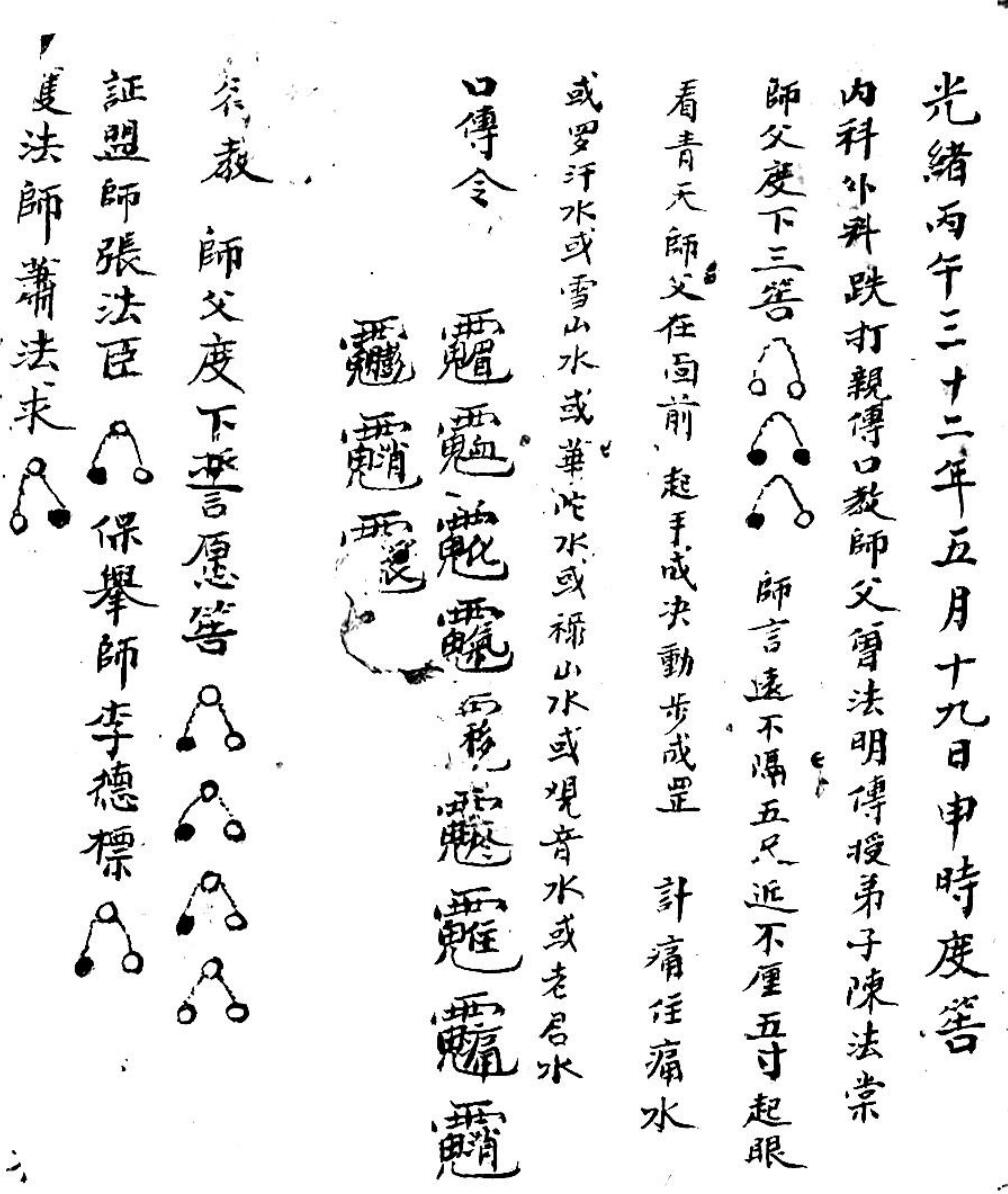 光緒丙午三十二年五月十九日申時度筶
内科外科跌打親傳口教師父曾法明傳授弟子陳法棠
師父度下三筶 師言遠不隔五尺近不厘五寸起眼
看青天師父在面前 起手成决動步成罡 計痛住痛水
或罗汗水或雪山水或華陀水或禄山水或观音水或老君水
口傳令
教 師父度下誓言愿筶
証盟師張法臣 保舉師李德標
隻法師蕭法求